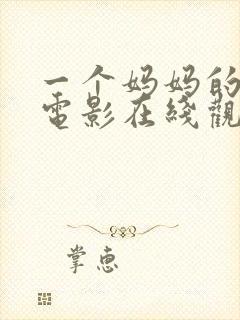 一个妈妈的
電影在綫觀
掌惠